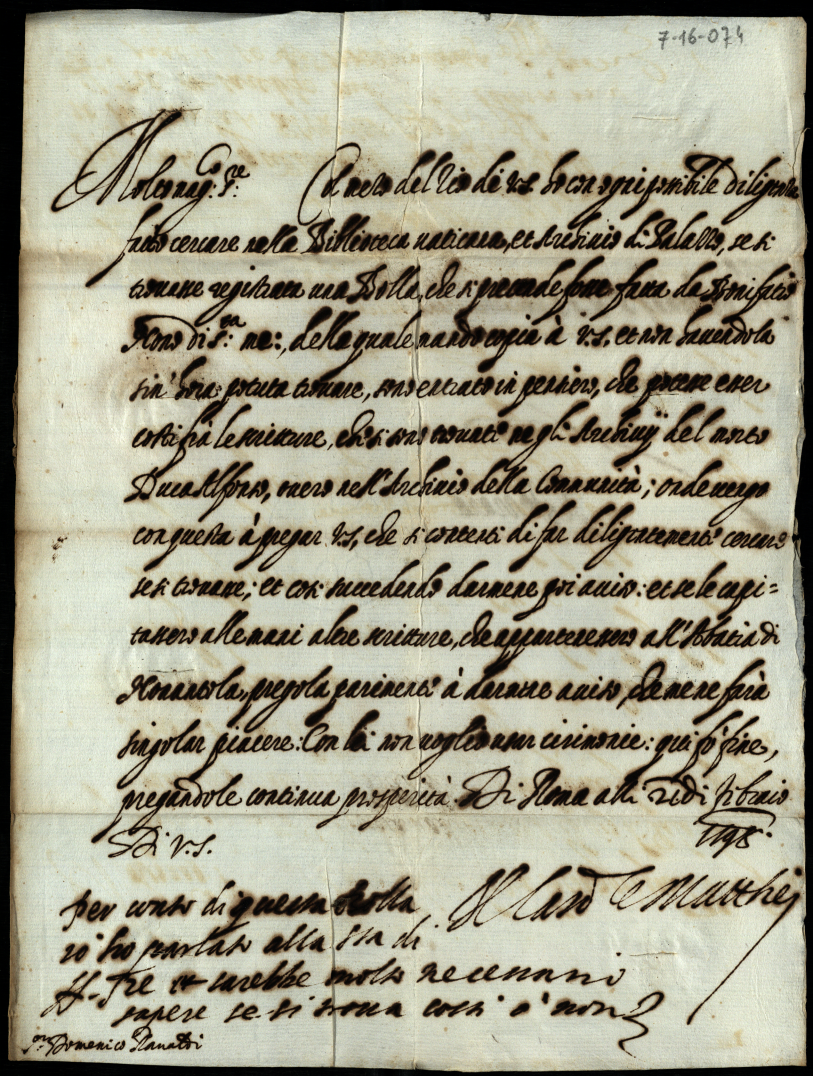 7-16-074
Molto mag.co s.re Col mezo del Tio di V.S. ho con ogni posibile diligenza
fatto cercare nella Biblioteca vaticana, et Archivio di Palazzo, se si
trovasse registrata una Bolla, che si pretende fatta da Bonifatio
Nono di s.ta me:, della quale mando copia à V.S. et non havendola
sin' hora potuta trovare, sono entrato in pensiero, che potesse esser
costì frà le scritture, che si sono trovate negli Archivij del morto
Duca Alfonso, overo nell'Archivio della Comunità; onde vengo
con questa à pregar V.S. che si contenti di far diligentemente cercare
se si trovasse; et cosi succedendo darmene poi aviso: et se le capi=
tassero alle mani altre scritture, che appartenessero all'Abatia di
Nonantola, pregola parimenti à darmene aviso, che me ne farà
singolar piacere: Con lei non voglio usar cirimonie: qui fò fine,
pregandole continua prosperità. Di Roma alli di febraio
Di V.S. 1598.
per conto di questa bolla Il Card.le Matthei
io ho parlato alla S.tà di
N. S.re et sarebbe molto necessario
sapere se si trova costì ò non
s.or Domenico